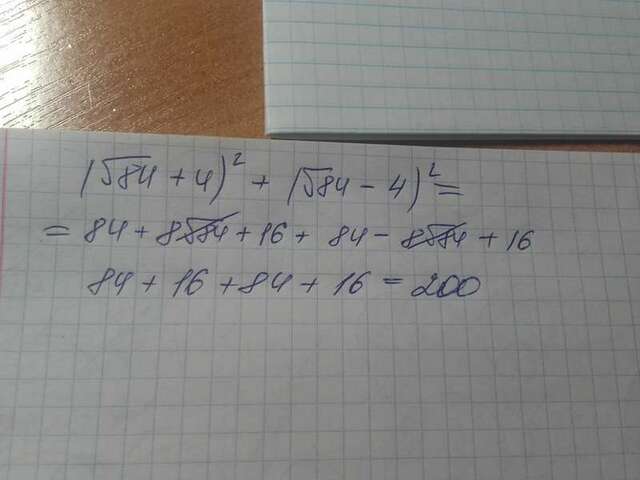 (√84 + 4)² + (√84 - 4)² =
= 84 + 8√84 + 16 + 84 - 8√84 + 16
84 + 16 + 84 + 16 = 200